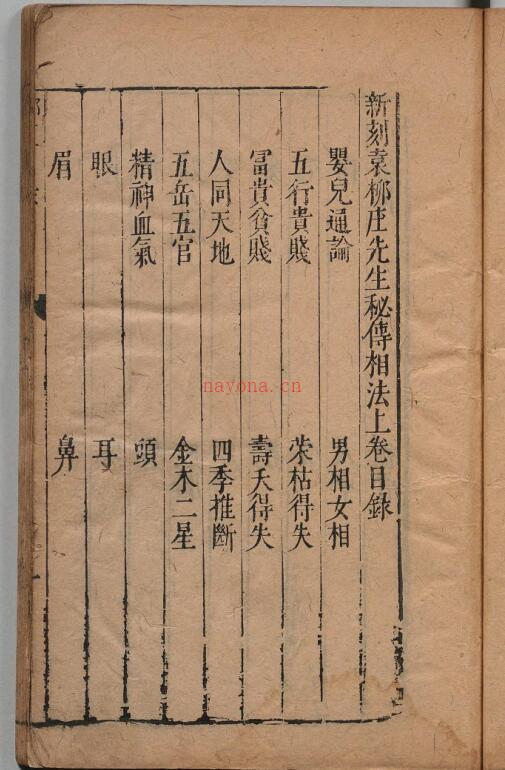 新刻袁柳庄先生秘傳相法上卷目錄
嬰兒通論 男相女相
五行貴賤 荣枯得失
冨貴貧賤 壽夭得失
人同天地 四季推斷
五岳五官 金木二星
精神血氣 頭
眼 耳
眉 鼻
nayona.cn